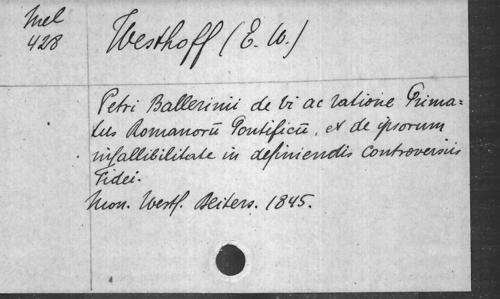 Mel
428
Westhoff (E. W.)
Petri Ballerinii de vi ac ratione Prima=
tus Romanorū Pontificū, et de ipsorum
infallibilitate in definiendis controversiis
Fidei.
Mon. Westf. Deiters. 1845.